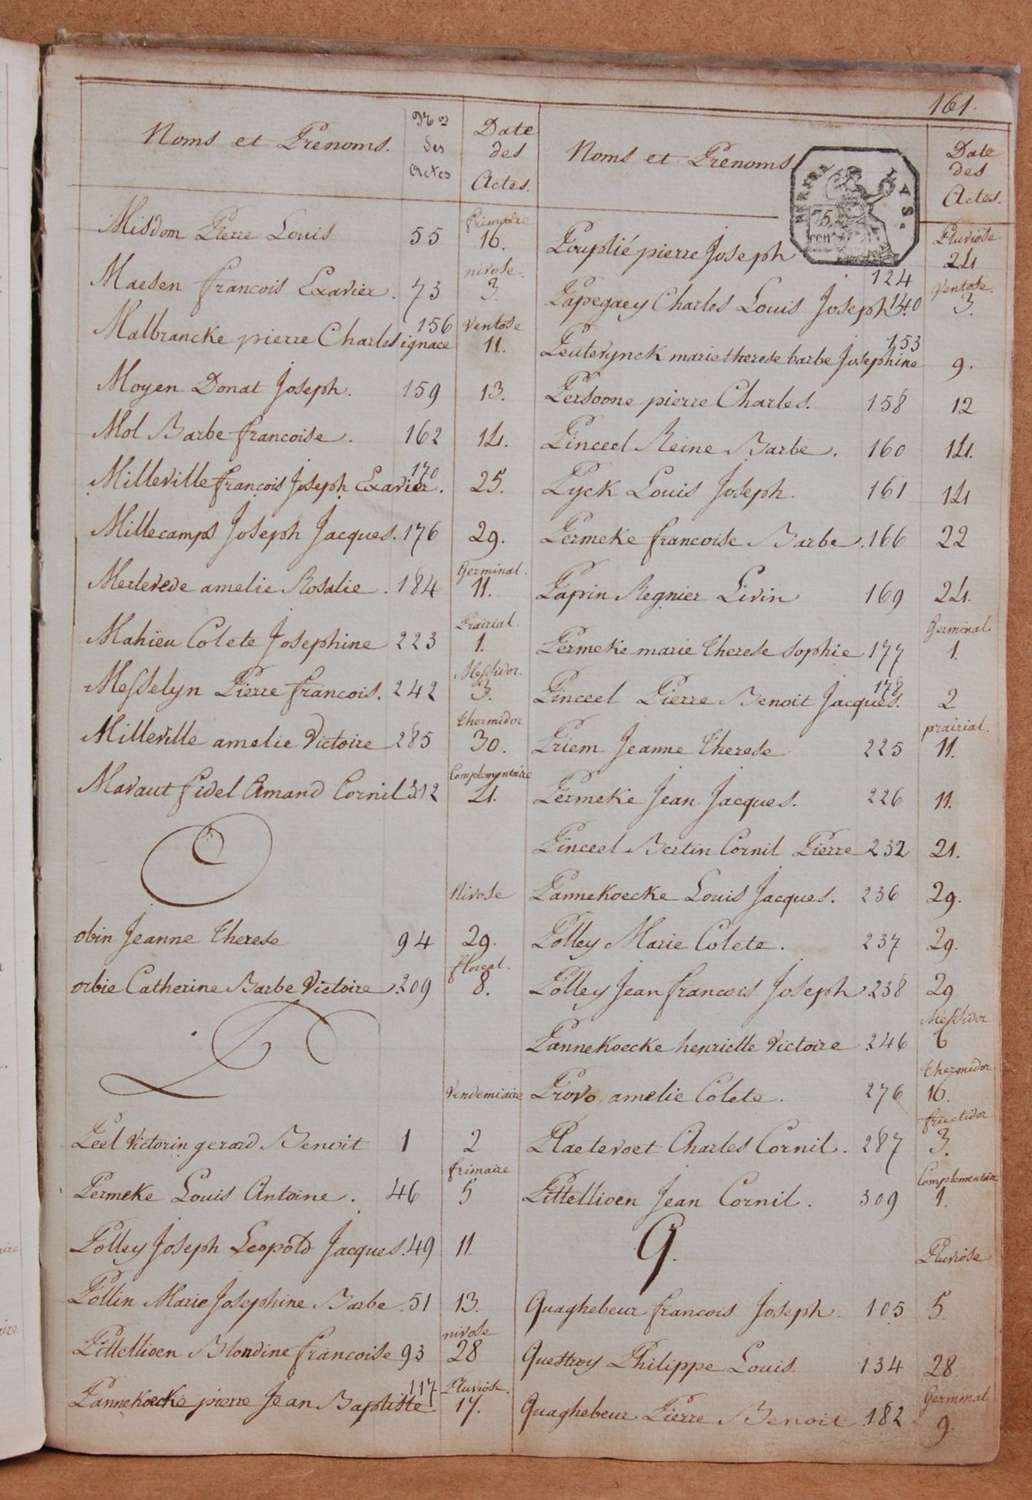 161.
Noms et Prenoms. Nros des Actes Date des Actes.
Misdom Pierre Louis 55 frimaire 16.
Maesen francois Exavier. 73 nivose. 3.
Malbrancke pierre Charles ignace 156 Ventose 11.
Moyen Donat Joseph. 159 13.
Mol Barbe francoise. 162 14.
Milleville francois Joseph Exavier. 170 25.
Millecamps Joseph Jacques. 176 29.
Merlevede amelie Rosalie. 184 Germinal. 11.
Mahieu Colete Josephine 223 Prairial. 1.
Messelyn Pierre francois. 242 Messidor. 3.
Milleville amelie Victoire 285 thermidor 30.
Mavaut fidel Amand Cornil 312 Complementaire 4.
O
obin Jeanne Therese 94 Nivose 29.
orbie Catherine Barbe Victoire 209 floreal. 8.
P
Peel Victorin gerard Benoit 1 Vendemiaire 2
Permeke Louis Antoine. 46 frimaire 5
Polley Joseph Leopold Jacques. 49 11.
Pollin Marie Josephine Barbe. 51 13.
Pittellioen Blondine francoise 93 nivose 28
Pannekoecke pierre Jean Baptiste 117 Pluviôse. 17.
Noms et Prenoms Date des Actes.
75 cent
Pouplié pierre Joseph 124 Pluviôse 24
Papegaey Charles Louis Joseph 140 Ventose. 3.
Peuterynck marie therese barbe Josephine 153 9.
Persoone pierre Charles. 158 12
Pinceel Reine Barbe. 160 14.
Pyck Louis Joseph. 161 14
Permeke francoise Barbe. 166 22
Paprin Regnier Livin 169 24.
Permeke marie therese sophie 177 Germinal. 1.
Pinceel Pierre Benoit Jacques. 178 2
Priem Jeanne therese 225 prairial. 11.
Permeke Jean Jacques. 226 11.
Pinceel Bertin Cornil Pierre 232 21.
Pannekoecke Louis Jacques. 236 29.
Polley Marie Colete. 237 29.
Polley Jean francois Joseph 238 29
Pannekoecke henriette Victoire 246 Messidor 6
Provo amelie Colete. 276 thermidor 16.
Plaetevoet Charles Cornil. 287 fructidor 3.
Pittellioen Jean Cornil. 309 Complementaire 1.
Q.
Quaghebeur francois Joseph. 105 Pluviôse 5.
Questroy Philippe Louis. 134 28
Quaghebeur Pierre Benoit 182 Germinal 9.